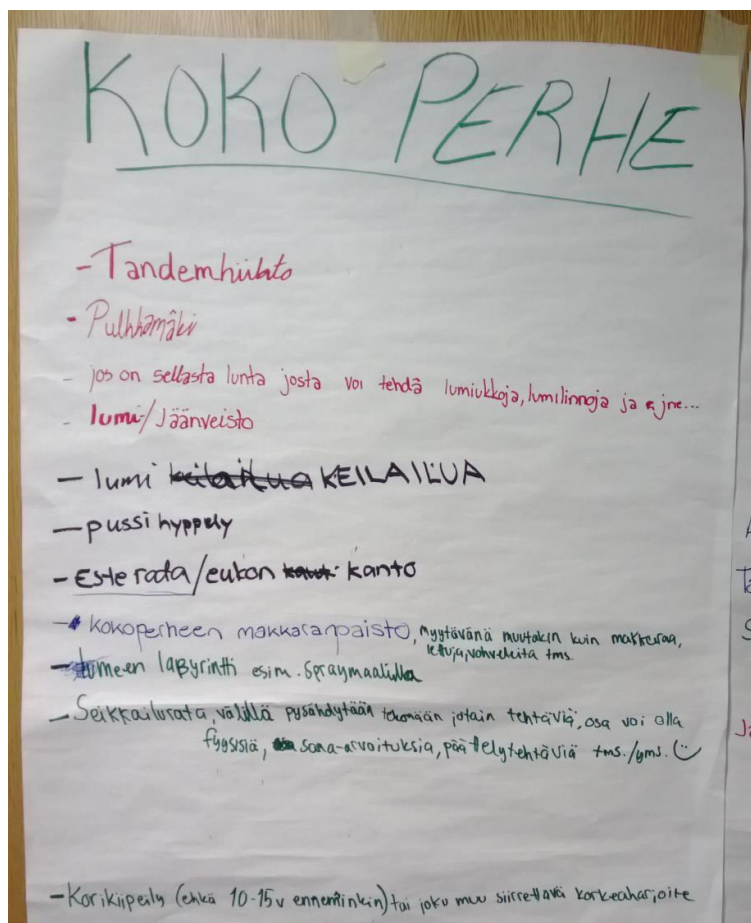 KOKO PERHE
- Tandemhiihto
- Pulkkamäki
- jos on sellasta lunta josta voi tehdä lumiukkoja, lumilinnoja ja jne...
- lumi/Jäänveisto
- lumi keilailua KEILAILUA
- pussi hyppely
- Este rata/eukon kanto
- kokoperheen makkaranpaisto, myytävänä muutakin kuin makkaraa,
lettuja, vohveleita tms.
- lumeen labyrintti esim. spraymaalilla
- Seikkailurata, välillä pysähdytään tekemään jotain tehtäviä, osa voi olla
fyysisiä, sana-arvoituksia, päättelytehtäviä tms./yms.
- Korikiipeily (ehkä 10-15v ennemminkin) tai joku muu siirrettävä korkeaharjoite